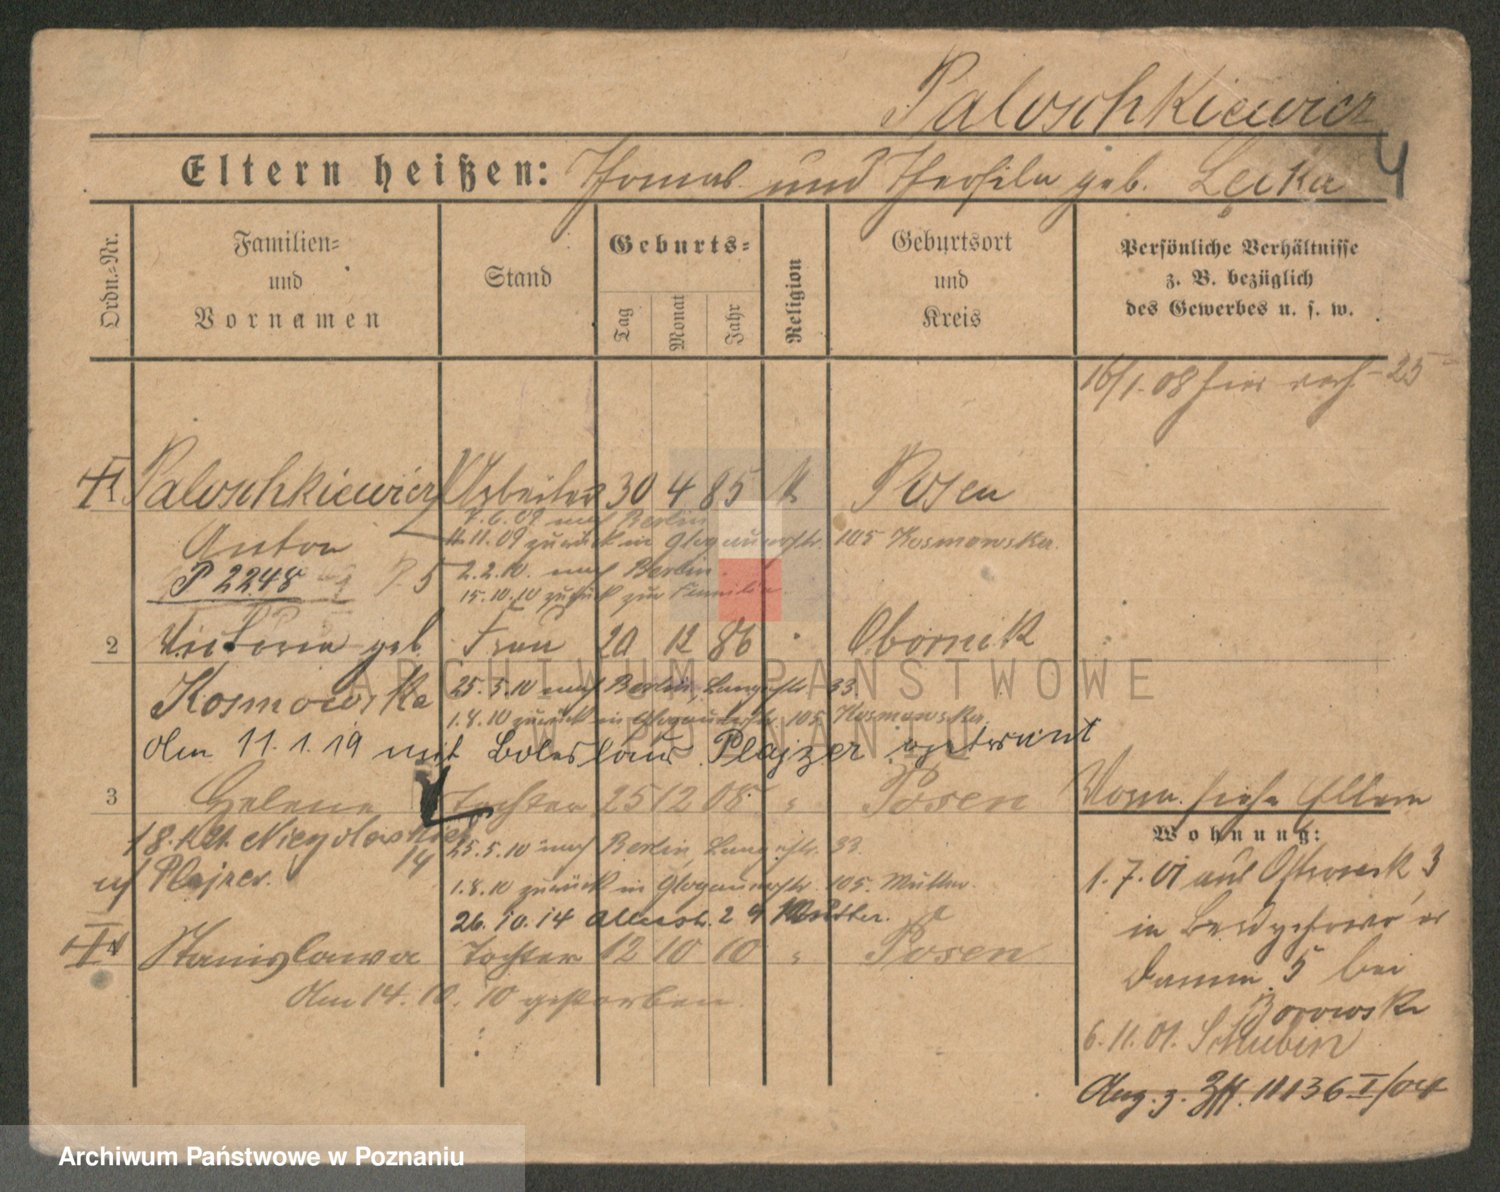 Paloschkiewicz
4
Eltern heißen: Thomas und Theofila geb. Lecka
Ordn.=Nr.
Familien= und Vornamen
Stand
Geburts=
Tag Monat Jahr
Religion
Geburtsort und Kreis
Persönliche Verhältnisse
z. B. bezüglich
des Gewerbes u. s. w.
16/1.08 hier
1 Paloschkiewicz Arbeiter 30 4 85 k Posen
7.6.09 nach Berlin
Anton 11.11.09 zurück in Glogauerstr. 105 Kosmowska.
P 2248 75 2.2.10. nach Berlin.
15.10.10 zurück zur Familie.
2 Victoria geb. Frau 20 12 86 " Obornik
Kosmowska 25.5.10 nach Berlin, 33.
1.8.10 zurück in Glogauerstr. 105 Kosmowska.
Am 11.1.19 mit Boleslaus Plajzer getraut
3 Helene Tochter 25 12 08 " Posen
25.5.10 nach Berlin, 33.
Plajzer. 1.8.10 zurück in Glogauerstr. 105. Mutter.
26.10.14 29 Mutter.
4 Stanislawa Tochter 12 10 10 " Posen
Am 14.10.10 gestorben.
Vorm. siehe Eltern
Wohnung:
1.7.01 aus Ostrowek 3
in
Damm 5 bei
Borowska
6.11.01. Schubin
Ang. z. 11136 I/04
ARCHIWUM PAŃSTWOWE
W POZNANIU
Archiwum Państwowe w Poznaniu